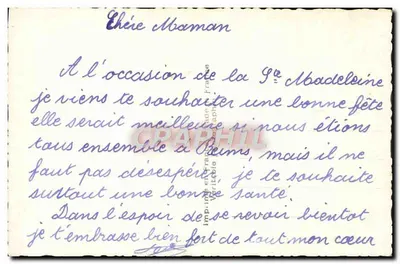 Chère Maman
A l'occasion de la Ste Madeleine
je viens te souhaiter une bonne fête
elle serait meilleure si nous étions
tous ensemble à Reims, mais il ne
faut pas désespérer je te souhaite
surtout une bonne santé.
Dans l'espoir de se revoir bientot
je t'embrasse bien fort de tout mon cœur
CPAPHIL